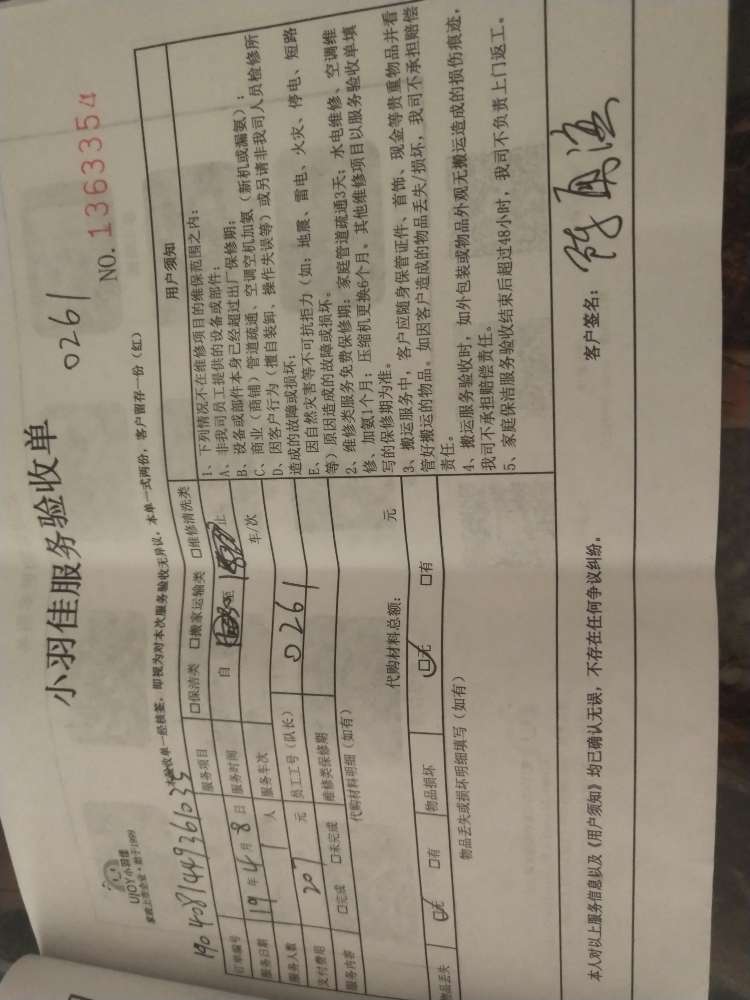 小羽佳服务验收单
0261
NO. 1363354
UJOY小羽佳
家政上市企业·始于1999
本验收单一经核签，即视为对本次服务验收无异议。本单一式两份，客户留存一份（红）
订单编号 1904081449361035
服务项目 □保洁类 □搬家运输类 □维修清洗类
服务日期 19年4月8日
服务时间 自 至 止
服务人数 1 人
服务车次 车/次
支付费用 207 元
员工工号（队长） 0261
服务内容 □完成 □未完成
维修类保修期
代购材料明细（如有）
代购材料总额： 元
物品丢失 □无 □有
物品损坏 □无 □有
物品丢失或损坏明细填写（如有）
用户须知
1、下列情况不在维修项目的维保范围之内：
A、非我司员工提供的设备或部件；
B、设备或部件本身已经超过出厂保修期；
C、商业（商铺）管道疏通、空调空机加氨（新机或漏氨）；
D、因客户行为（擅自装卸、操作失误等）或另请非我司人员检修所
造成的故障或损坏；
E、因自然灾害等不可抗拒力（如：地震、雷电、火灾、停电、短路
等）原因造成的故障或损坏。
2、维修类服务免费保修期：家庭管道疏通3天；水电维修、空调维
修、加氨1个月；压缩机更换6个月。其他维修项目以服务验收单填
写的保修期为准。
3、搬运服务中，客户应随身保管证件、首饰、现金等贵重物品并看
管好搬运的物品。如因客户造成的物品丢失/损坏，我司不承担赔偿
责任。
4、搬运服务验收时，如外包装或物品外观无搬运造成的损伤痕迹，
我司不承担赔偿责任。
5、家庭保洁服务验收结束后超过48小时，我司不负责上门返工。
本人对以上服务信息以及《用户须知》均已确认无误，不存在任何争议纠纷。
客户签名：